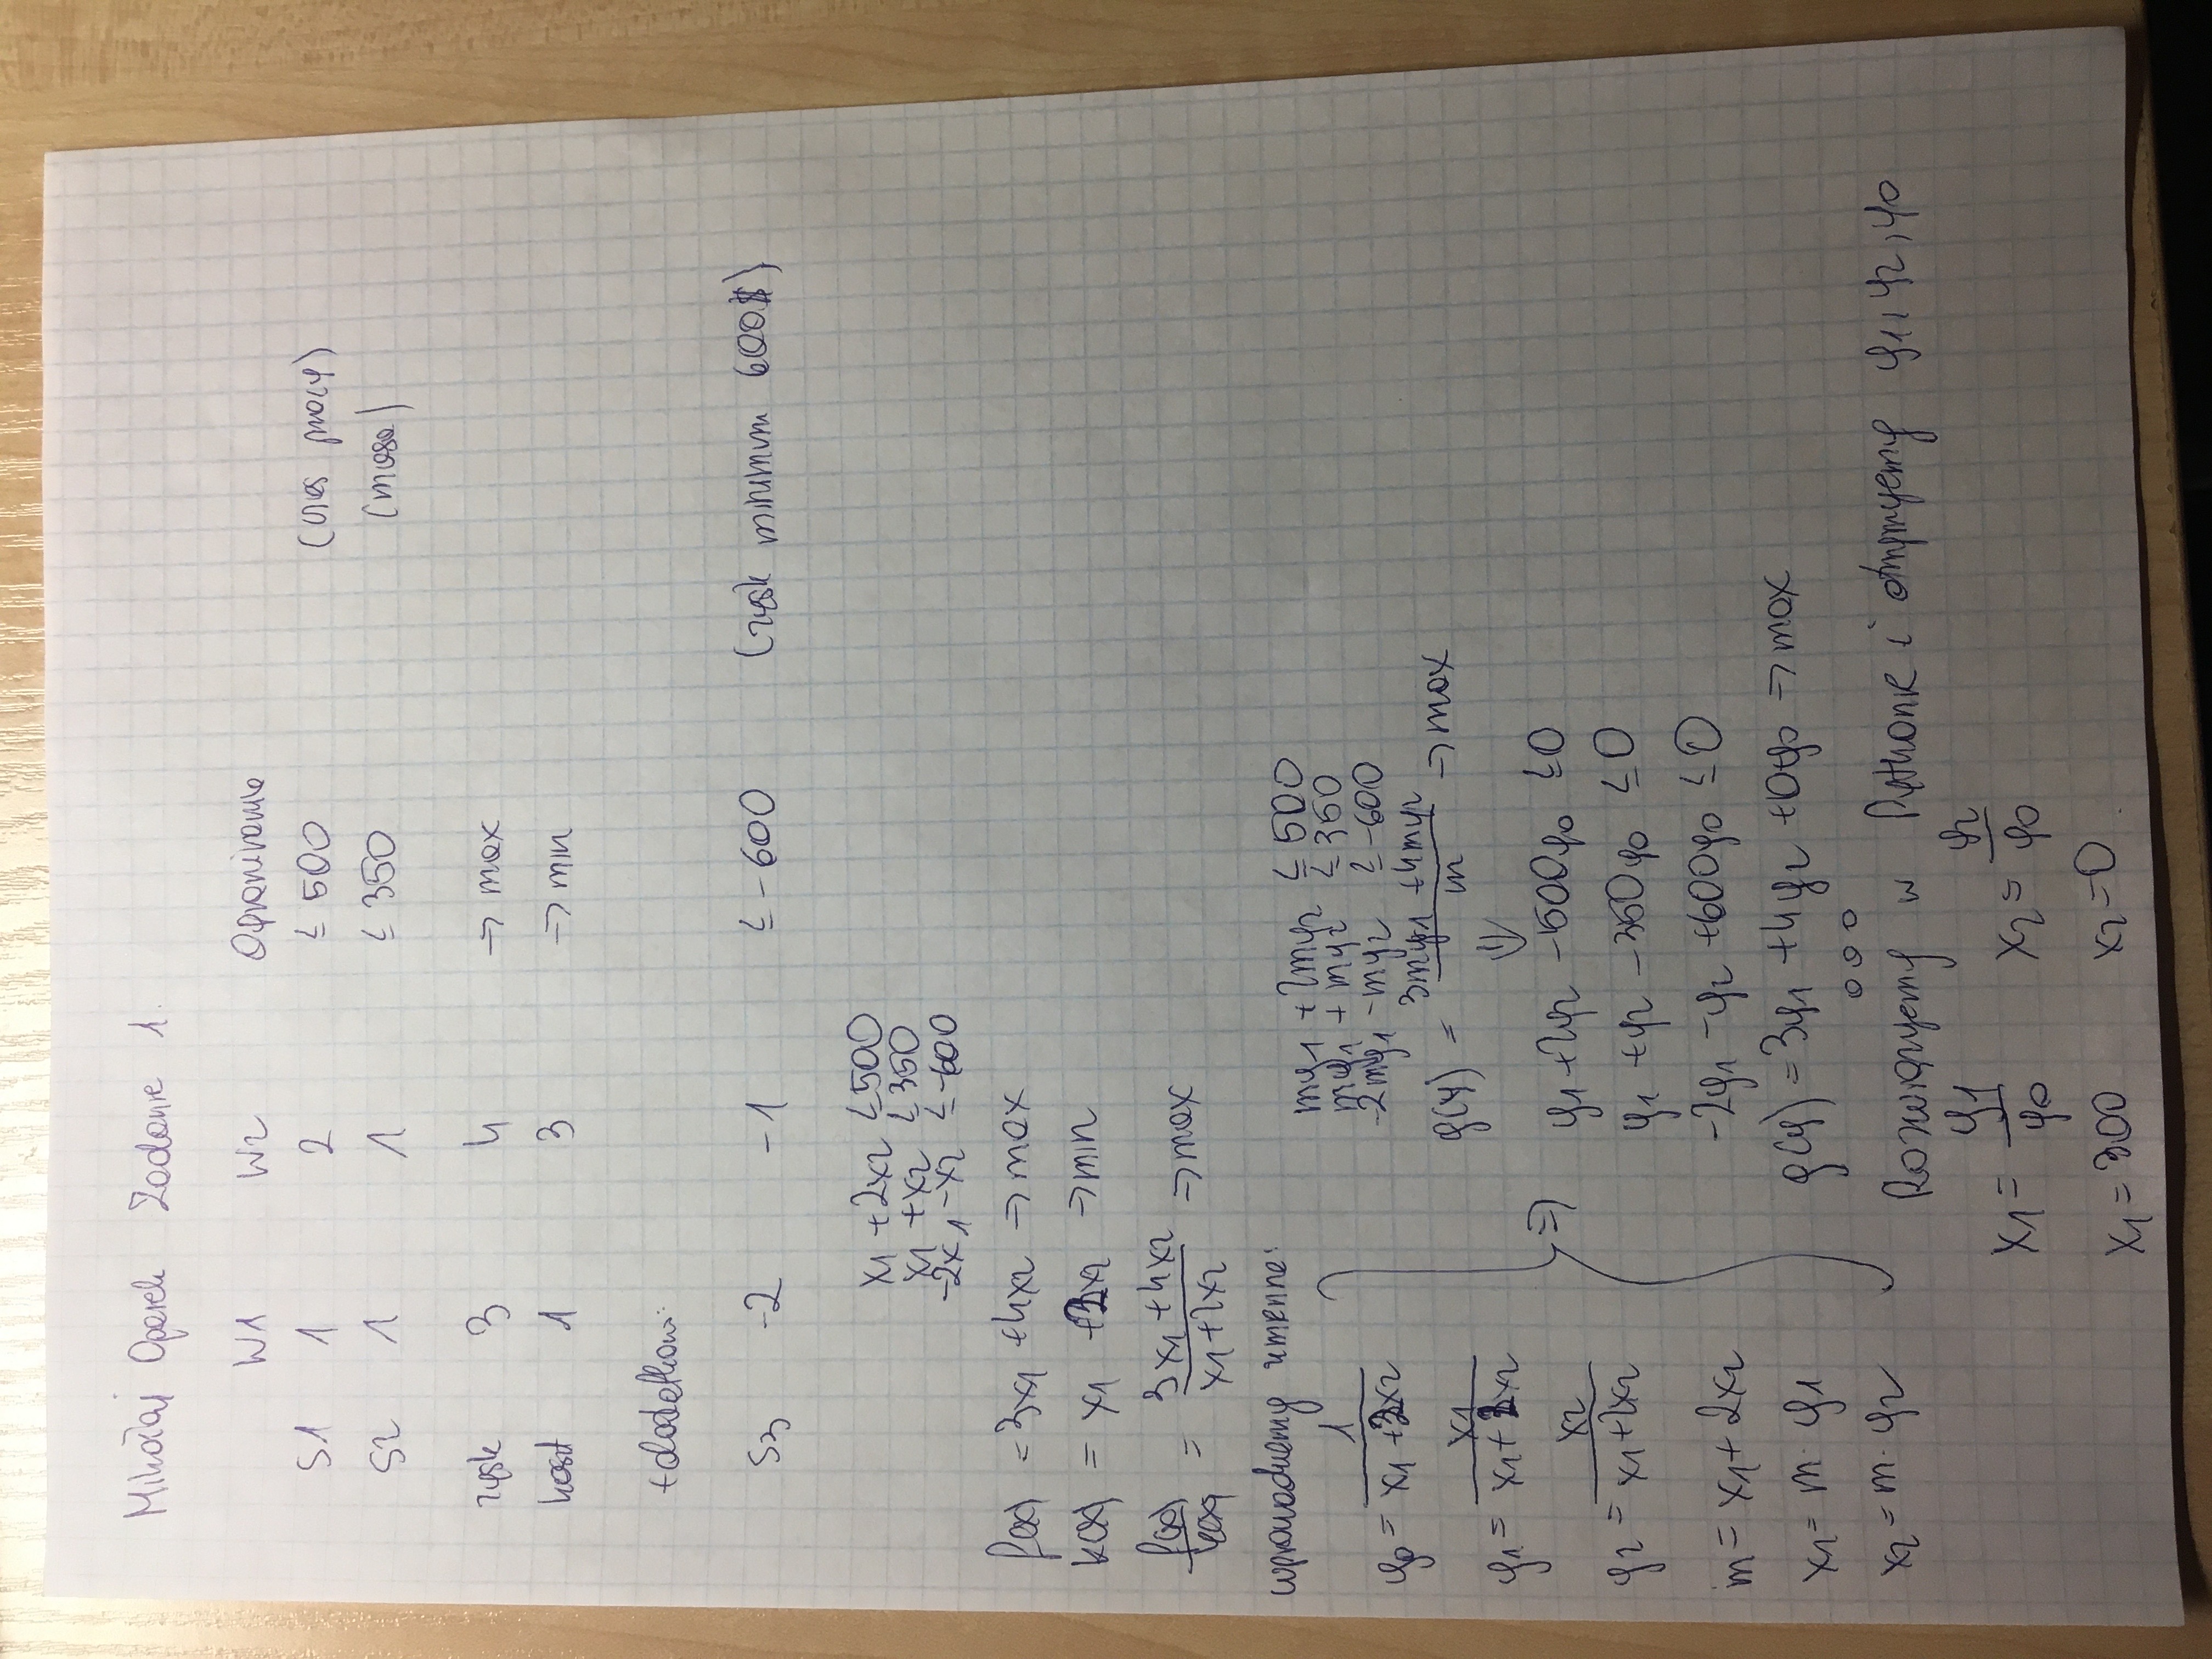 Mikołaj Oparek Zadanie 1.
W1 W2 Ograniczenie
S1 1 2 ≤ 500 (czas pracy)
S2 1 1 ≤ 350 (masa)
zysk 3 4 → max
koszt 1 3 → min
+dodatkowo:
S3 -2 -1 ≤ -600 (zysk minimum 600$)
x1 + 2x2 ≤ 500
x1 + x2 ≤ 350
-2x1 - x2 ≤ -600
f(x) = 3x1 + 4x2 → max
k(x) = x1 + 2x2 → min
f(x)/k(x) = (3x1 + 4x2)/(x1 + 2x2) → max
wprowadzamy zmienne:
y0 = 1/(x1 + 2x2)
y1 = x1/(x1 + 2x2)
y2 = x2/(x1 + 2x2)
m = x1 + 2x2
x1 = m · y1
x2 = m · y2
⇒
my1 + 2my2 ≤ 500
my1 + my2 ≤ 350
-2my1 - my2 ≥ -600
g(y) = (3my1 + 4my2)/m → max
⇓
y1 + 2y2 - 500y0 ≤ 0
y1 + y2 - 350y0 ≤ 0
-2y1 - y2 + 600y0 ≤ 0
g(y) = 3y1 + 4y2 + 0y0 → max
ooo
Rozwiązujemy w Pythonie i otrzymujemy y1, y2, y0
x1 = y1/y0 x2 = y2/y0
x1 = 300 x2 = 0.